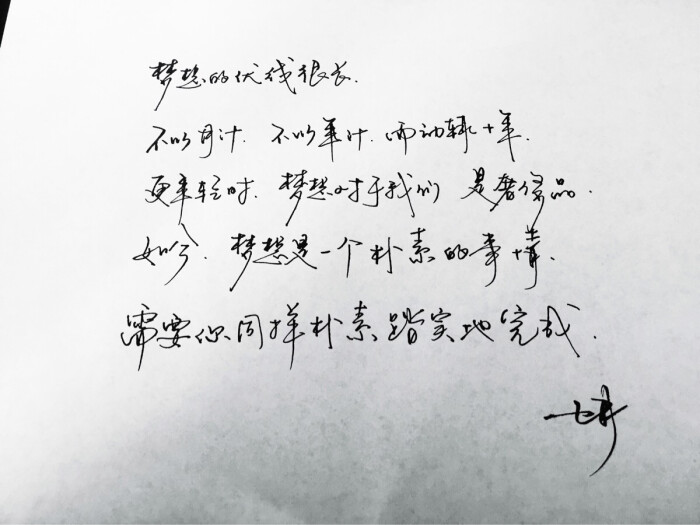 梦想的伏线很长.
不以月计.不以年计.而动辄十年.
更年轻时.梦想对于我们是奢侈品.
如今.梦想是一个朴素的事情.
需要你同样朴素踏实地完成.